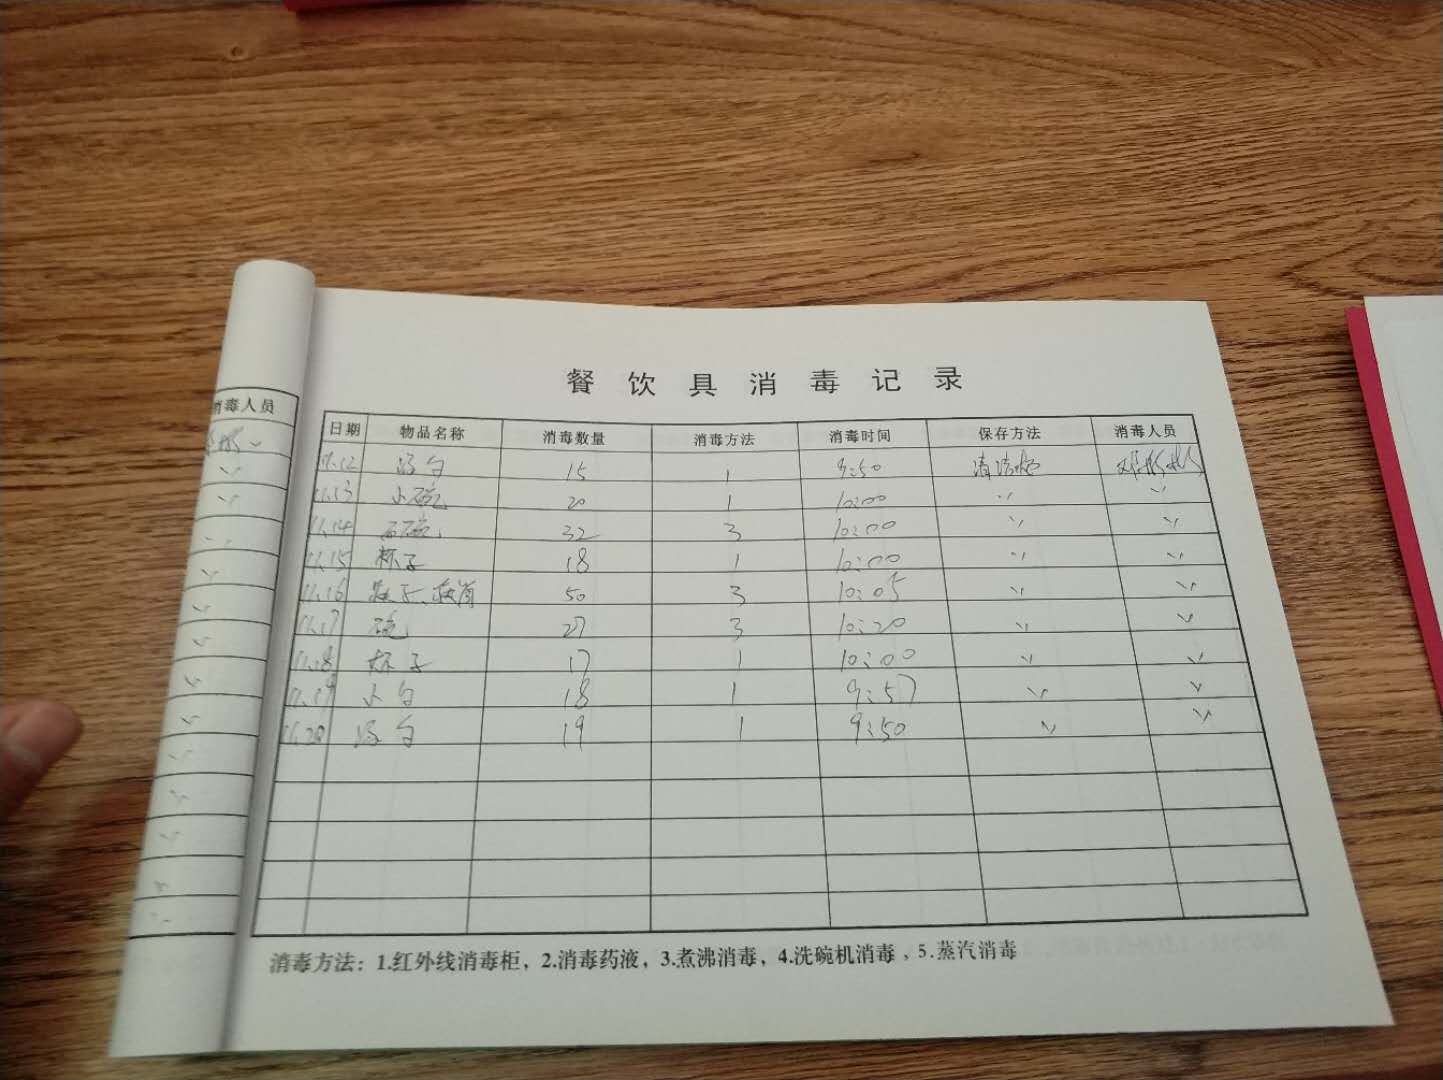 餐饮具消毒记录
消毒人员
日期 物品名称 消毒数量 消毒方法 消毒时间 保存方法 消毒人员
11.12 汤勺 15 1 9:50 清洁柜
11.13 小碗 20 1 10:00 〃 〃
11.14 32 3 10:00 〃 〃
11.15 杯子 18 1 10:00 〃 〃
11.16 筷子、 50 3 10:05 〃 〃
11.17 碗 27 3 10:20 〃 〃
11.18 杯子 17 1 10:00 〃 〃
11.19 小勺 18 1 9:57 〃 〃
11.20 汤勺 19 1 9:50 〃 〃
消毒方法：1.红外线消毒柜，2.消毒药液，3.煮沸消毒，4.洗碗机消毒，5.蒸汽消毒